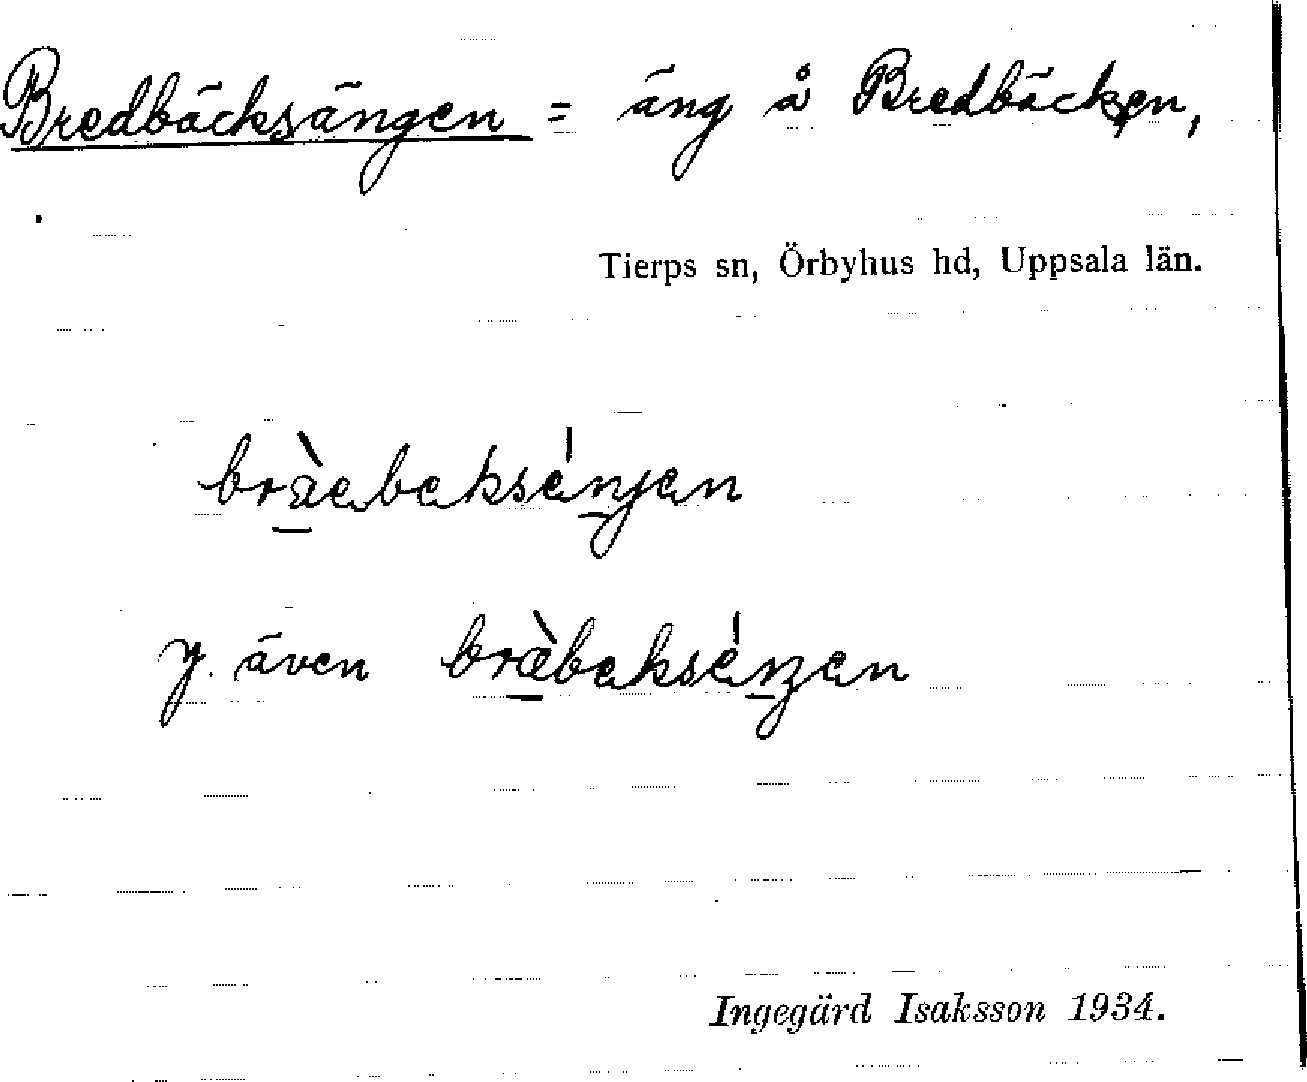 Bredbäcksängen = äng å Bredbäcken,
Tierps sn, Örbyhus hd, Uppsala län.
y. även
Ingegärd Isaksson 1934.